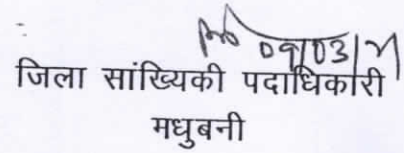 09/03/21
जिला सांख्यिकी पदाधिकारी
मधुबनी